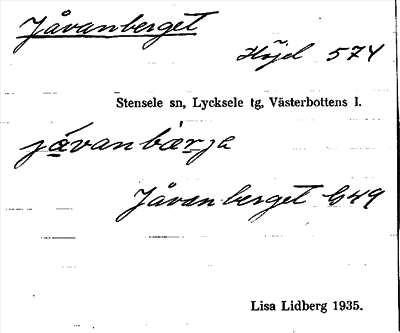 Jåvanberget
Höjd 574
Stensele sn, Lycksele tg, Västerbottens l.
jåvanbærja
Jåvanberget 649
Lisa Lidberg 1935.